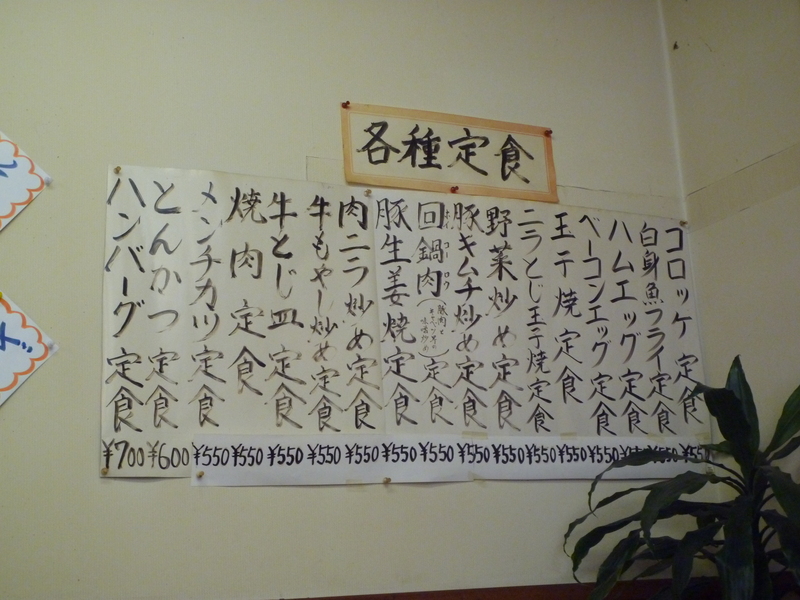 各種定食
コロッケ定食 ¥550
白身魚フライ定食 ¥550
ハムエッグ定食
ベーコンエッグ定食 ¥550
玉子焼定食 ¥550
ニラとじ玉子焼定食 ¥550
野菜炒め定食 ¥550
豚キムチ炒め定食 ¥550
回鍋肉(豚肉とキャベツの味噌炒め)定食 ¥550
豚生姜焼定食 ¥550
肉ニラ炒め定食 ¥550
牛もやし炒め定食 ¥550
牛とじ皿定食 ¥550
焼肉定食 ¥550
メンチカツ定食 ¥550
とんかつ定食 ¥600
ハンバーグ定食 ¥700